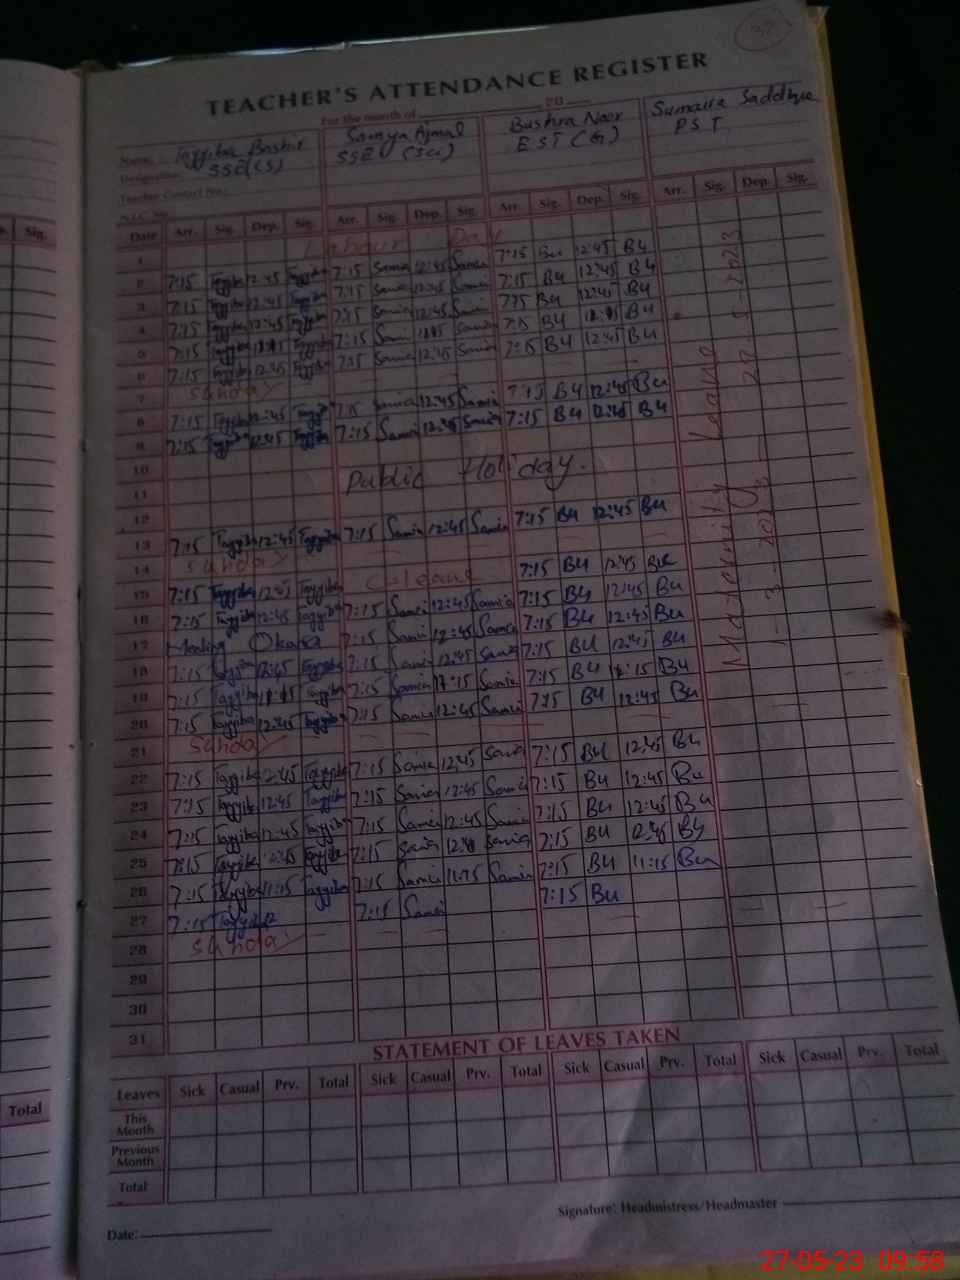 37
TEACHER'S ATTENDANCE REGISTER
For the month of 20
Name Tayyiba Bashir Samya Ajmal Bushra Noor Sumaira
Designation SSE(CS) SSE (Sci) EST (G) PST
Teacher Contact No.:
Date Arr. Sig. Dep. Sig. Arr. Sig. Dep. Sig. Arr. Sig. Dep. Sig. Arr. Sig. Dep. Sig.
1 Labour Day
2 7:15 Tayyiba 12:45 Tayyiba 7:15 Samia 12:45 Samia 7:15 Bu 12:45 Bu
3 7:15 Tayyiba 12:45 Tayyiba 7:15 Samia 12:45 Samia 7:15 Bu 12:45 Bu
4 7:15 Tayyiba 12:45 Tayyiba 7:15 Samia 12:45 Samia 7:15 Bu 12:45 Bu
5 7:15 Tayyiba Tayyiba 7:15 Samia Samia 7:15 Bu Bu
6 7:15 Tayyiba 12:45 Tayyiba 7:15 Samia 12:45 Samia 7:15 Bu 12:45 Bu
7 Sunday
8 7:15 Tayyiba 12:45 Tayyiba 7:15 Samia 12:45 Samia 7:15 Bu 12:45 Bu
9 7:15 Tayyiba 12:45 Tayyiba 7:15 Samia 12:45 Samia 7:15 Bu 12:45 Bu
10
11 Public Holiday.
12
13 7:15 Tayyiba 12:45 Tayyiba 7:15 Samia 12:45 Samia 7:15 Bu 12:45 Bu
14 Sunday
15 7:15 Tayyiba 12:45 Tayyiba C-leave 7:15 Bu 12:45 Bu
16 7:15 Tayyiba 12:45 Tayyiba 7:15 Samia 12:45 Samia 7:15 Bu 12:45 Bu
17 Meeting Okara 7:15 Samia 12:45 Samia 7:15 Bu 12:45 Bu
18 7:15 Tayyiba 12:45 Tayyiba 7:15 Samia 12:45 Samia 7:15 Bu 12:45 Bu
19 7:15 Tayyiba Tayyiba 7:15 Samia Samia 7:15 Bu Bu
20 7:15 Tayyiba 12:45 Tayyiba 7:15 Samia 12:45 Samia 7:15 Bu 12:45 Bu
21 Sunday
22 7:15 Tayyiba 12:45 Tayyiba 7:15 Samia 12:45 Samia 7:15 Bu 12:45 Bu
23 7:15 Tayyiba 12:45 Tayyiba 7:15 Samia 12:45 Samia 7:15 Bu 12:45 Bu
24 7:15 Tayyiba 12:45 Tayyiba 7:15 Samia 12:45 Samia 7:15 Bu 12:45 Bu
25 7:15 Tayyiba 12:45 Tayyiba 7:15 Samia 12:45 Samia 7:15 Bu 12:45 Bu
26 7:15 Tayyiba 11:15 Tayyiba 7:15 Samia 11:15 Samia 7:15 Bu 11:15 Bu
27 7:15 Tayyiba 12 7:15 Samia 7:15 Bu
28 Sunday
29
30
31
Maternity Leave
STATEMENT OF LEAVES TAKEN
Leaves Sick Casual Prv. Total Sick Casual Prv. Total Sick Casual Prv. Total Sick Casual Prv. Total
This Month
Previous Month
Total
Signature: Headmistress/Headmaster
Date:
Sig.
Total
27-05-23 09:58